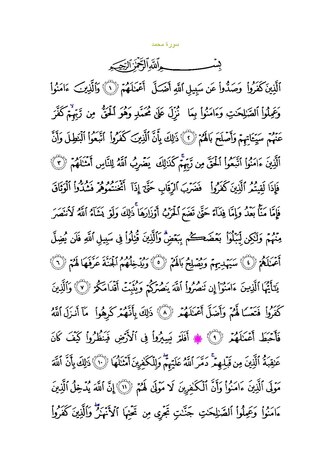 سورة محمد
بِسْمِ اللَّهِ الرَّحْمَٰنِ الرَّحِيمِ
الَّذِينَ كَفَرُوا۟ وَصَدُّوا۟ عَن سَبِيلِ اللَّهِ أَضَلَّ أَعْمَٰلَهُمْ ١ وَالَّذِينَ ءَامَنُوا۟
وَعَمِلُوا۟ الصَّٰلِحَٰتِ وَءَامَنُوا۟ بِمَا نُزِّلَ عَلَىٰ مُحَمَّدٍ وَهُوَ الْحَقُّ مِن رَّبِّهِمْ كَفَّرَ
عَنْهُمْ سَيِّـَٔاتِهِمْ وَأَصْلَحَ بَالَهُمْ ٢ ذَٰلِكَ بِأَنَّ الَّذِينَ كَفَرُوا۟ اتَّبَعُوا۟ الْبَٰطِلَ وَأَنَّ
الَّذِينَ ءَامَنُوا۟ اتَّبَعُوا۟ الْحَقَّ مِن رَّبِّهِمْ كَذَٰلِكَ يَضْرِبُ اللَّهُ لِلنَّاسِ أَمْثَٰلَهُمْ ٣
فَإِذَا لَقِيتُمُ الَّذِينَ كَفَرُوا۟ فَضَرْبَ الرِّقَابِ حَتَّىٰ إِذَا أَثْخَنتُمُوهُمْ فَشُدُّوا۟ الْوَثَاقَ
فَإِمَّا مَنًّا بَعْدُ وَإِمَّا فِدَاءً حَتَّىٰ تَضَعَ الْحَرْبُ أَوْزَارَهَا ذَٰلِكَ وَلَوْ يَشَاءُ اللَّهُ لَانتَصَرَ
مِنْهُمْ وَلَٰكِن لِّيَبْلُوَا۟ بَعْضَكُم بِبَعْضٍ وَالَّذِينَ قُتِلُوا۟ فِي سَبِيلِ اللَّهِ فَلَن يُضِلَّ
أَعْمَٰلَهُمْ ٤ سَيَهْدِيهِمْ وَيُصْلِحُ بَالَهُمْ ٥ وَيُدْخِلُهُمُ الْجَنَّةَ عَرَّفَهَا لَهُمْ ٦
يَٰٓأَيُّهَا الَّذِينَ ءَامَنُوا۟ إِن تَنصُرُوا۟ اللَّهَ يَنصُرْكُمْ وَيُثَبِّتْ أَقْدَامَكُمْ ٧ وَالَّذِينَ
كَفَرُوا۟ فَتَعْسًا لَّهُمْ وَأَضَلَّ أَعْمَٰلَهُمْ ٨ ذَٰلِكَ بِأَنَّهُمْ كَرِهُوا۟ مَا أَنزَلَ اللَّهُ
فَأَحْبَطَ أَعْمَٰلَهُمْ ٩ أَفَلَمْ يَسِيرُوا۟ فِي الْأَرْضِ فَيَنظُرُوا۟ كَيْفَ كَانَ
عَٰقِبَةُ الَّذِينَ مِن قَبْلِهِمْ دَمَّرَ اللَّهُ عَلَيْهِمْ وَلِلْكَٰفِرِينَ أَمْثَٰلُهَا ١٠ ذَٰلِكَ بِأَنَّ اللَّهَ
مَوْلَى الَّذِينَ ءَامَنُوا۟ وَأَنَّ الْكَٰفِرِينَ لَا مَوْلَىٰ لَهُمْ ١١ إِنَّ اللَّهَ يُدْخِلُ الَّذِينَ
ءَامَنُوا۟ وَعَمِلُوا۟ الصَّٰلِحَٰتِ جَنَّٰتٍ تَجْرِي مِن تَحْتِهَا الْأَنْهَٰرُ وَالَّذِينَ كَفَرُوا۟